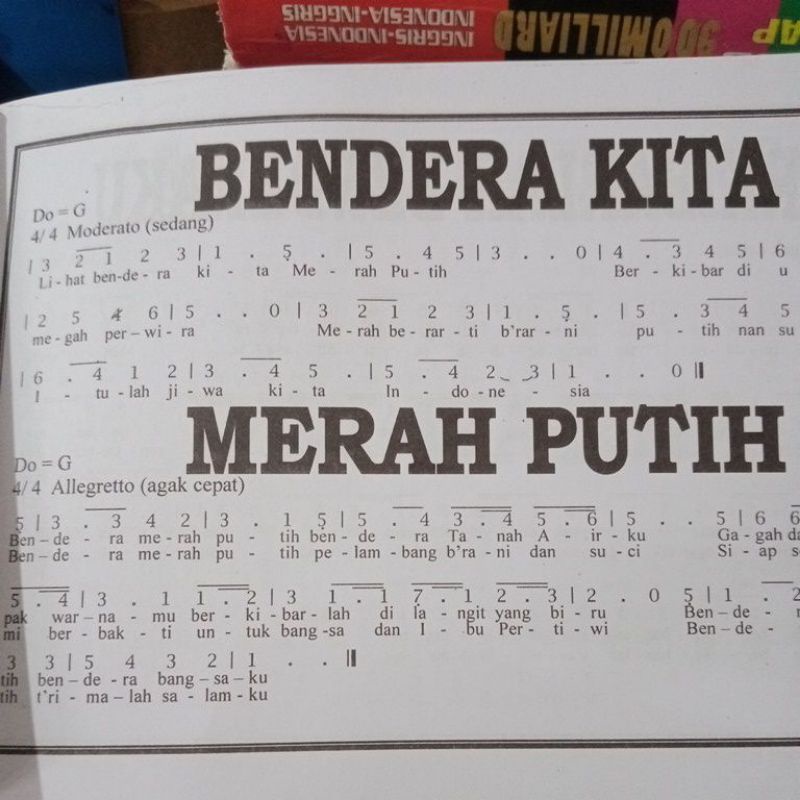 INGGRIS-INDONESIA
INDONESIA-INGGRIS
30 MILLIARD
AP
BENDERA KITA
Do = G
4/4 Moderato (sedang)
| 3 2 1 2 3 | 1 . 5̣ . | 5 . 4 5 | 3 . . 0 | 4 . 3 4 5 | 6
Li - hat ben-de - ra ki - ta Me - rah Pu - tih Ber - ki - bar di u
| 2 5 4 6 | 5 . . 0 | 3 2 1 2 3 | 1 . 5̣ . | 5 . 3 4 5
me - gah per – wi - ra Me - rah be - rar - ti b'rar - ni pu - tih nan su
| 6 . 4 1 2 | 3 . 4 5 . | 5 . 4 2 3 | 1 . . 0 ||
I - tu - lah ji - wa ki - ta In - do - ne - sia
MERAH PUTIH
Do = G
4/4 Allegretto (agak cepat)
5̣ | 3 . 3 4 2 | 3 . 1 5̣ | 5 . 4 3 . 4 5 . 6 | 5 . . 5 | 6 6
Ben - de - ra me - rah pu - tih ben - de - ra Ta - nah A - ir - ku Ga - gah da
Ben – de - ra me - rah pu - tih pe - lam - bang b'ra - ni dan su - ci Si - ap s
5 . 4 | 3 . 1 1 . 2 | 3 1 . 1 7̣ . 1 2 . 3 | 2 . 0 5̣ | 1 . 2
pak war – na - mu ber - ki - bar - lah di la - ngit yang bi - ru Ben – de - r
mi ber - bak - ti un - tuk bang - sa dan I - bu Per - ti - wi Ben – de -
3 3 | 5 4 3 2 | 1 . . ||
tih ben – de - ra bang – sa – ku
tih t'ri - ma – lah sa - lam - ku